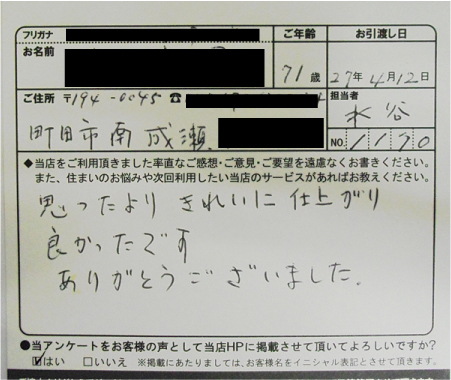 フリガナ
ご年齢
お引渡し日
お名前
71歳
27年4月12日
ご住所 〒194-0045 ☎
担当者
水谷
町田市南成瀬
NO.1170
◆当店をご利用頂きました率直なご感想・ご意見・ご要望を遠慮なくお書きください。
また、住まいのお悩みや次回利用したい当店のサービスがあればお教えください。
思ったより きれいに 仕上がり
良かったです
ありがとうございました。
●当アンケートをお客様の声として当店HPに掲載させて頂いてよろしいですか?
☑はい □いいえ ※掲載にあたりましては、お客様名をイニシャル表記とさせて頂きます。